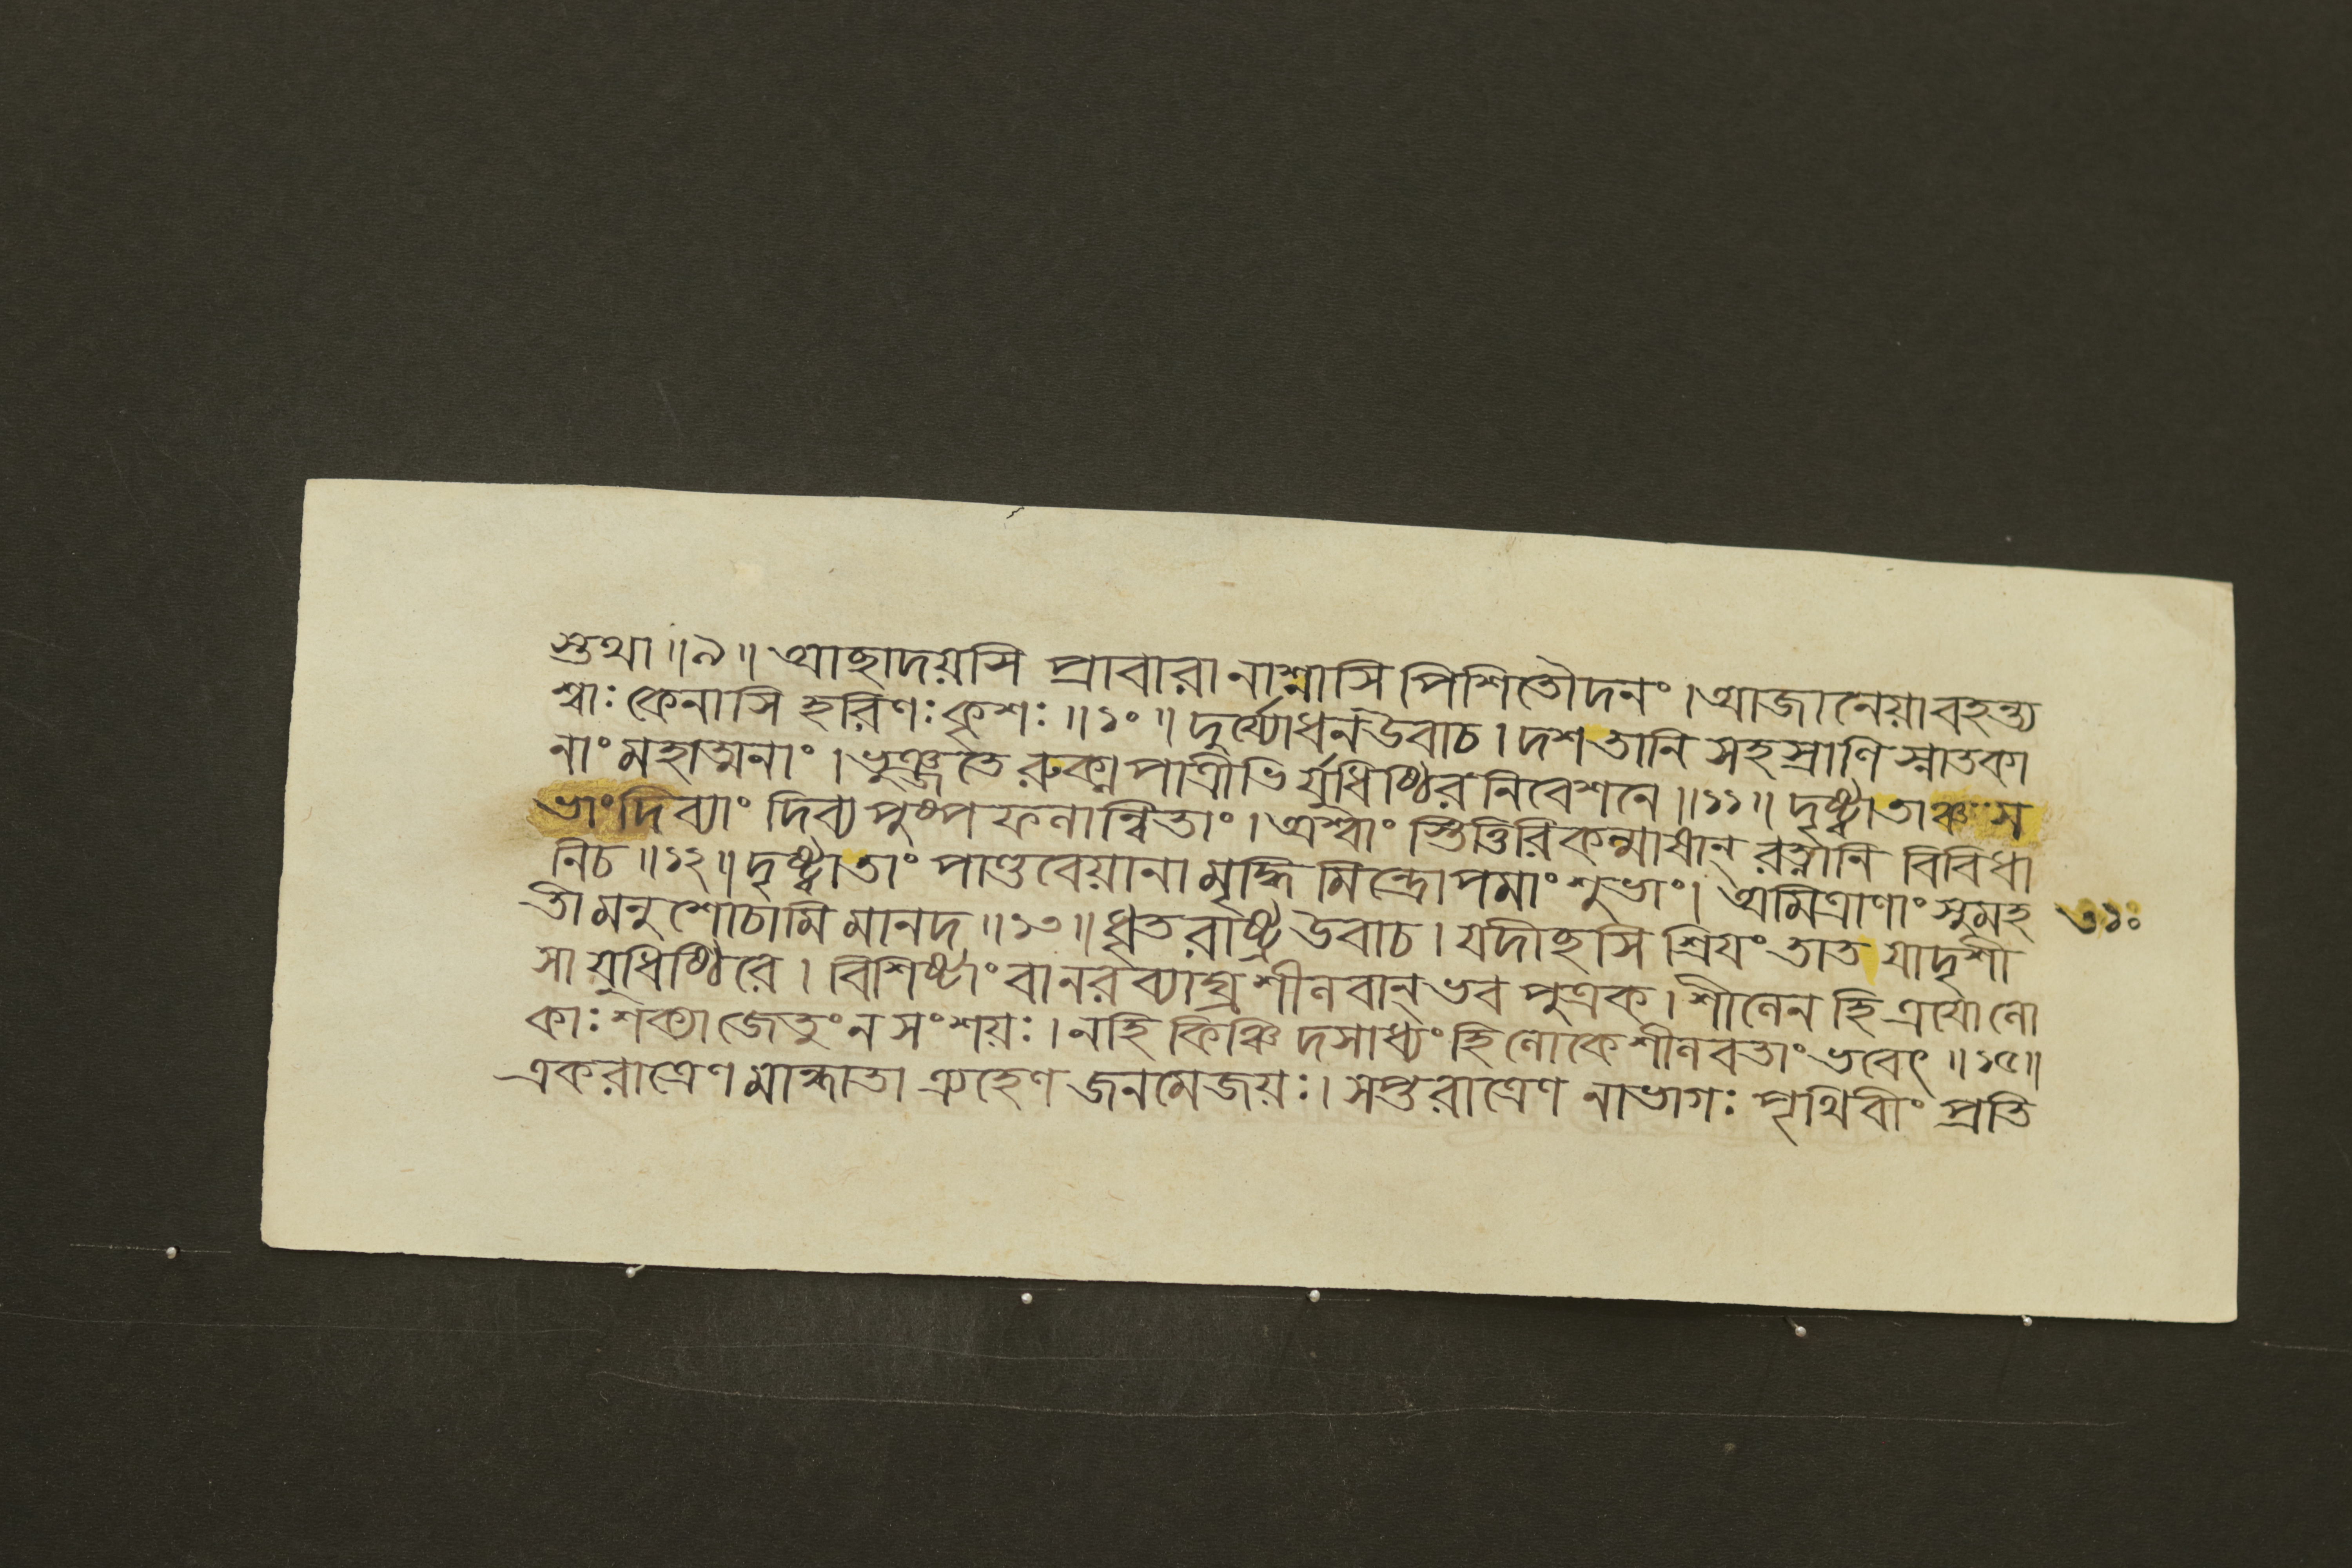 স্তুথা॥৯॥ আছাদয়সি প্রাবারানাশ্নাসি পিশিতৌদনং। আজানেয়াবহন্ত্য
শ্বাঃ কেনাসি হরিণঃ কৃশঃ ॥১০॥ দুর্য্যোধনউবাচ। দশতানি সহস্রাণি স্নাতকা
নাং মহাত্মনাং। ভুঞ্জতে রুক্মপাত্রীভি র্যুধিষ্ঠির নিবেশনে॥১১॥ দৃষ্ট্বাতাঞ্চ স
ভাং দিব্যাং দিব্যপুষ্পফলান্বিতাং। অশ্বাং স্তিত্তিরিকল্মাষান্ রত্নানি বিবিধা
নিচ॥১২॥ দৃষ্ট্বাতাং পাণ্ডবেয়ানামৃদ্ধি মিন্দ্রোপমাং শুভাং। অমিত্রাণাং সুমহ
তীমনুশোচামি মানদ॥১৩॥ ধৃতরাষ্ট্র উবাচ। যদীছসি শ্রিয়ং তাত যাদৃশী
সা যুধিষ্ঠিরে। বিশিষ্টাং বানরব্যাঘ্র শীলবান্ ভব পুত্রক। শীলেন হি ত্রয়োলো
কাঃ শক্যা জেতুং ন সংশয়ঃ। নহি কিঞ্চিদসাধ্যং হি লোকে শীলবতাং ভবেৎ॥১৫॥
একরাত্রেণ মান্ধাতা ত্র্যহেণ জনমেজয়ঃ। সপ্তরাত্রেণ নাভাগঃ পৃথিবীং প্রতি
৩১০